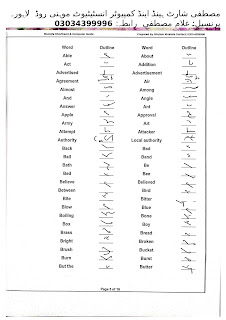 مصطفی شارٹ ہینڈ اینڈ کمپیوٹر انسٹیٹیوٹ موہنی روڈ لاہور۔
پرنسپل: غلام مصطفی رابطہ: 03034399996
Word Outline Word Outline
Able About
Act Addition
Advertised Advertisement
Agreement Air
Almost Among
And Angle
Answer Ant
Apple Approval
Army Art
Attempt Attacker
Authority Local authority
Back Bad
Ball Band
Bath Be
Bed Bee
Believe Believed
Between Bird
Bite Bitter
Blow Blue
Boiling Bone
Box Boy
Brass Bread
Bright Broken
Brush Bucket
Burn Burst
But the Butter